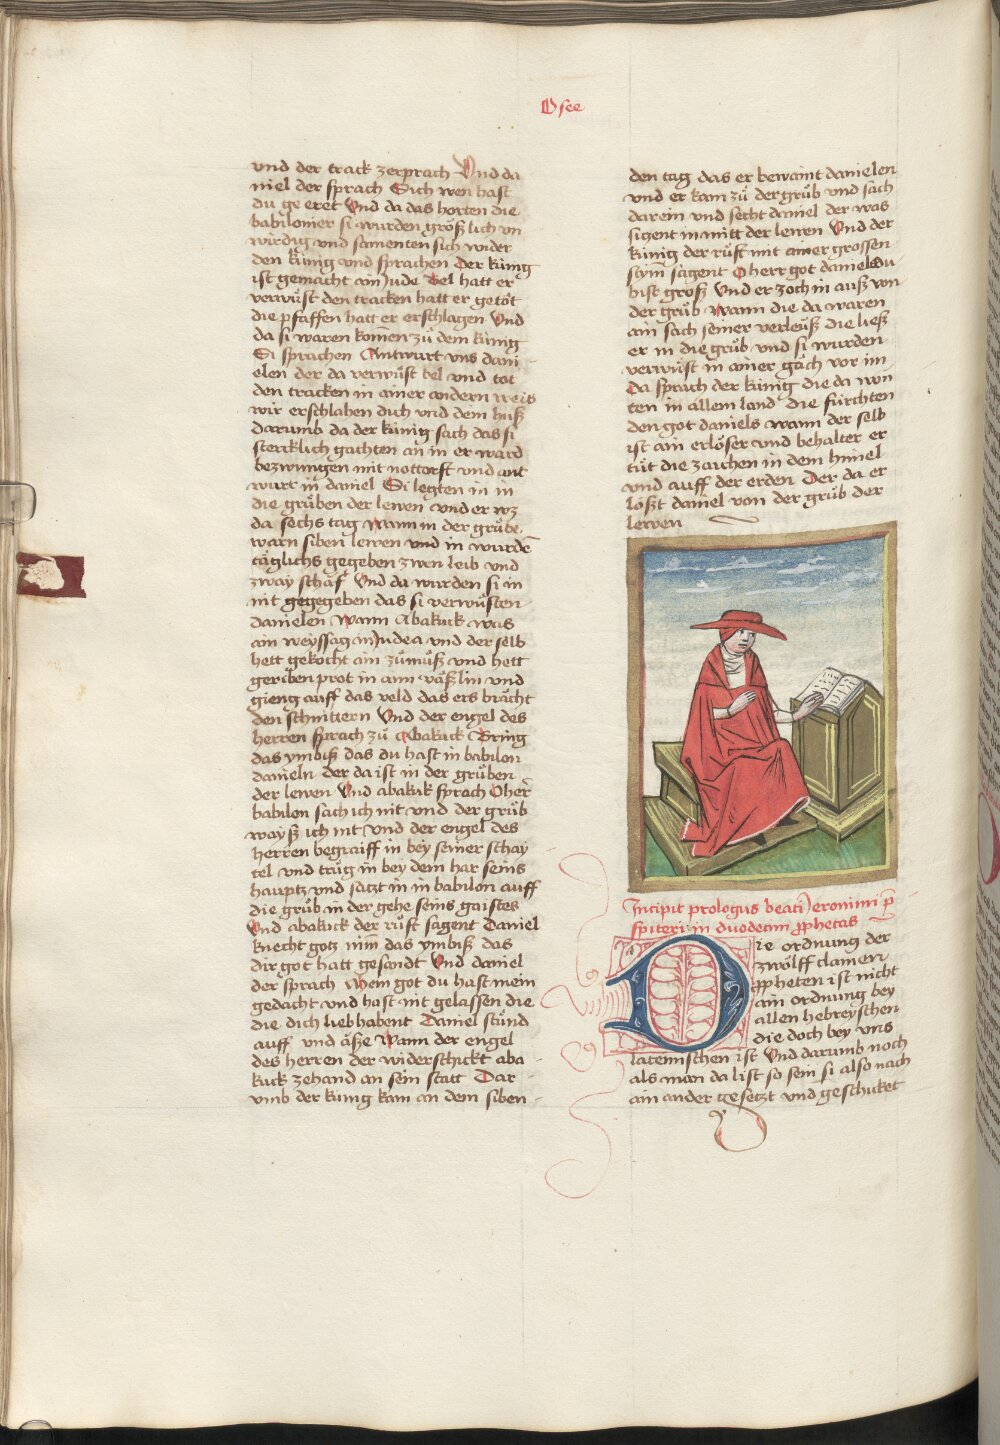 Osee
vnd der track zerprach Vnd da
niel der sprach Sich wen hast
du ge eret Vnd da das horten die
babilonier si wurden größlich vn
wirdig vnd samenten sich wider
den künig vnd sprachen Der künig
ist gemacht ain Jude Bel hatt er
verwüst den tracken hatt er getöt
die pfaffen hatt er erschlagen Vnd
da si waren komen zů dem künig
Si sprachen Antwurt vns dani
elen der da verwüst bel vnd tot
den tracken in ainer andern weis
wir erschlahen dich vnd dein huß
Darumb da der künig sach das si
stercklich gachten an in er ward
bezwungen mit nottorft vnd ant
wurt in daniel Si legten in in
die grůben der lewen vnd er wz
da sechs tag Wann in der grůbe
warn siben lewen vnd in wurdē
täglichs gegeben zwen leib vnd
zway schäf Vnd da wurden si in
nit gegegeben das si verwüsten
danielen Wann Abakuk was
ain weyssag in Judea vnd der selb
hett gekocht ain zůmůß vnd hett
geriben prot in aim väßlin vnd
gieng auff das veld das ers brächt
den schnittern Vnd der engel des
herren sprach zů Abakuck Bring
das ymbiß das du hast in babilon
danieln der da ist in der grůben
der lewen Vnd abakuk sprach O her
babilon sach ich nit vnd der grůb
wayß ich nit Vnd der engel des
herren begraiff in bey seiner schay
tel vnd trůg in bey dem har seins
hauptz vnd satzt in in babilon auff
die grůb in der gehe seins gaistes
Vnd abakuck der růft sagent Daniel
knecht gotz nim̄ das ymbiß das
dir got hatt gesandt Vnd daniel
der sprach Mein got du hast mein
gedacht vnd hast nit gelassen die
die dich lieb habent Daniel stůnd
auff vnd äße Wann der engel
des herren der widerschickt aba
kuck zehand an sein statt Dar
vmb der kunig kam an dem siben
den tag das er bewaint danielen
vnd er kam zů der grůb vnd sach
darein vnd secht daniel der was
sitzent in mitt der lewen Vnd der
künig der růft mit ainer grossen
stym̄ sagent O herr got daniels du
bist groß Vnd er zoch in auß von
der grůb Wann die da waren
ain sach seiner verleüß die ließ
er in die grůb vnd si wurden
verwüst in ainer gäch vor im
Da sprach der künig die da won
ten in allem land die fürchten
den got daniels wann der selb
ist ain erlöser vnd behalter er
tůt die zaichen in dem himel
vnd auff der erden Der da er
lößt daniel von der grůb der
lewen
Incipit prologus beati Jeronimi p̄
spiteri in duodecim ꝓphetas
Die ordnung der
zwölff clainen
ꝓpheten ist nicht
ain ordnung bey
allen hebreyschen
die doch bey vns
lateinischen ist Vnd darumb noch
als man da list so sein si also nach
ain ander gesetzt vnd geschicket